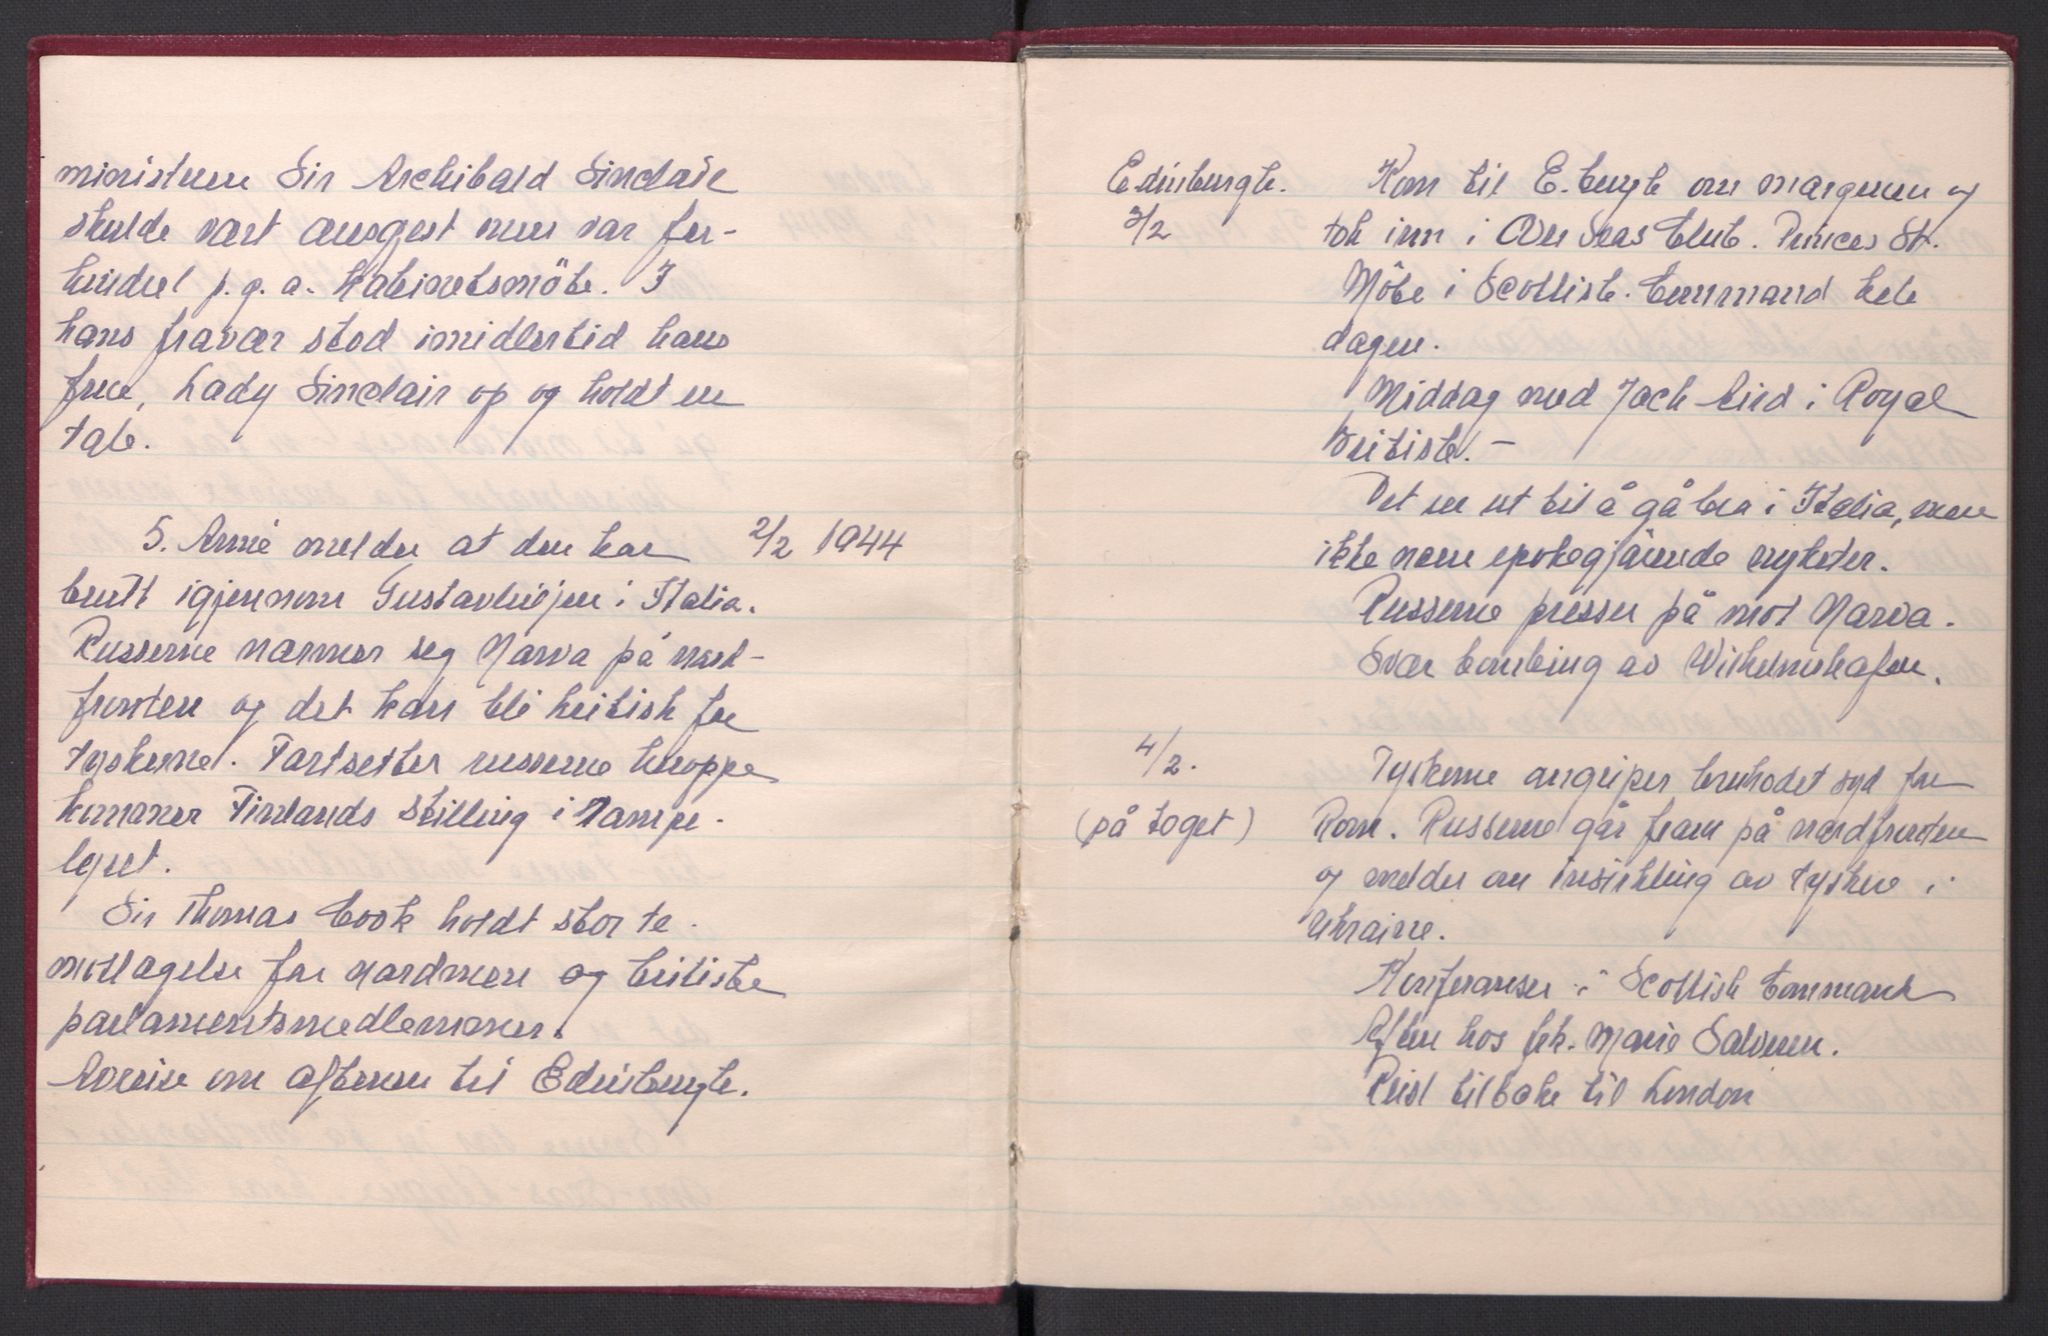 ministeren Sir Archibald Sinclair
skulde vært angest men var for-
hindret p.g.a. kabinetsmöte. I
hans fravær stod imidlertid hans
frue, Lady Sinclair op og holdt en
tale.
5. Armé melder at den har 2/2 1944
brutt igjennom Gustavlinjen i Italia.
Russerne nærmer seg Narva på nord-
fronten og det kan bli kritisk for
tyskerne. Fortsetter russerne kroppe
kommer Finlands stilling i stampe-
lyset.
Sir Thomas Cook holdt stor te-
mottagelse for nordmenn og britiske
parlamentsmedlemmer.
Avreise om aftenen til Edinburgh.
Edinburgh. Kom til E.burgh om morgenen og
3/2 tok inn i Over Seas Club. Princes St.
Möte i Scottish. Command hele
dagen.
Middag med Jack Aird i Royal
British. -
Det ser ut til å gå bra i Italia, men
ikke noen epokegjörende nyheter.
Russerne presser på mot Narva.
Svær bombing av Wilhelmshafen.
4/2. Tyskerne angriper bruhodet syd for
(på toget) Rom. Russerne går fram på nordfronten
og melder om innsirkling av tyskere i
Ukraine.
Konferanser i Scottish Command
Aften hos frk. Marie Salvesen.
Reist tilbake til London